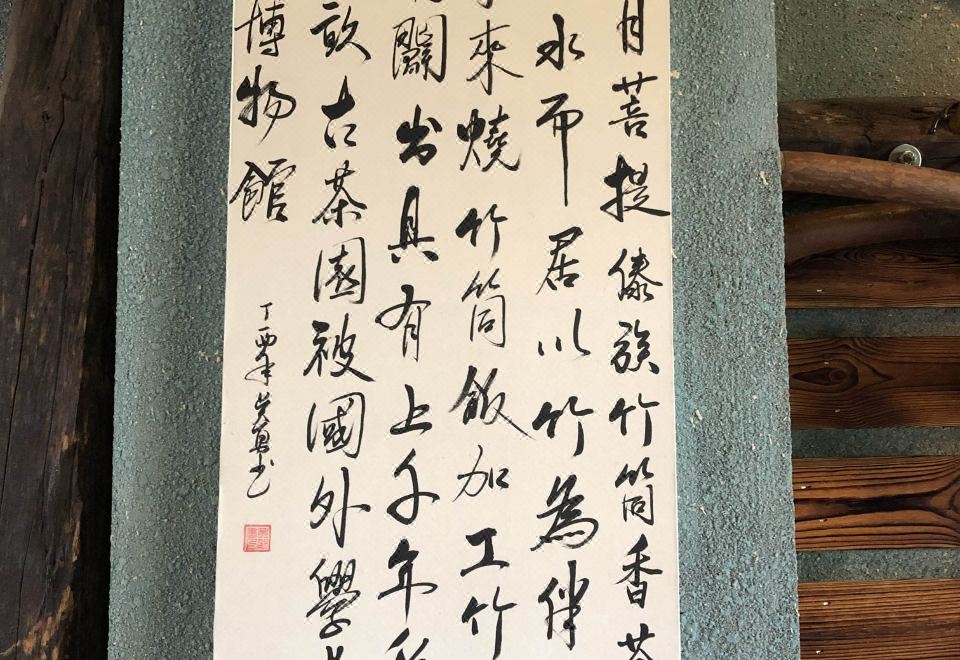 月菩提傣族竹筒香茶
水而居以竹為伴
來燒竹筒飯加工竹
闢出具有上千年
畝古茶園被國外學
博物館
丁酉年